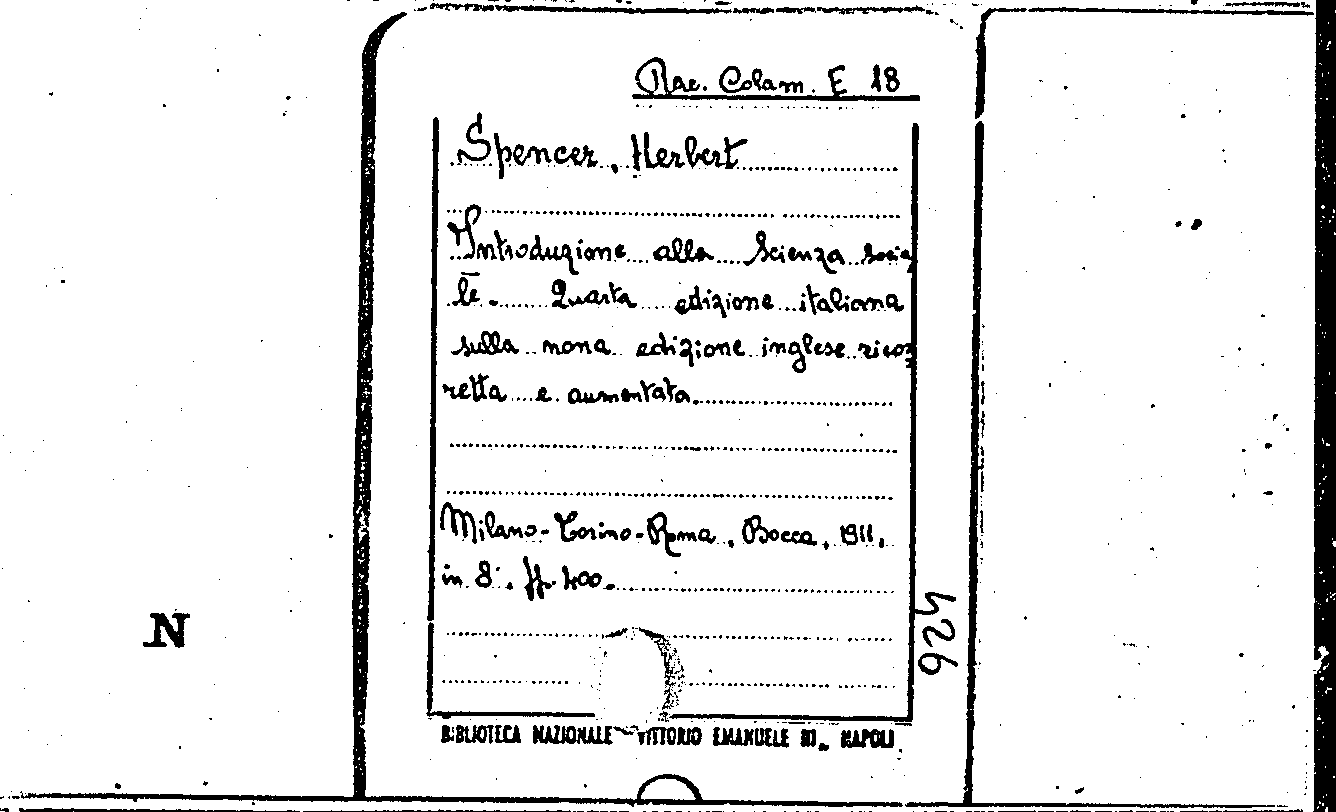 Rac. Colam. E 18
Spencer, Herbert
Introduzione alla Scienza socia
le. Quarta edizione italiana
sulla nona edizione inglese ricor
retta e aumentata.
Milano-Torino-Roma, Bocca, 1911,
in 8°. pp. 400.
426
N
BIBLIOTECA NAZIONALE VITTORIO EMANUELE III - NAPOLI